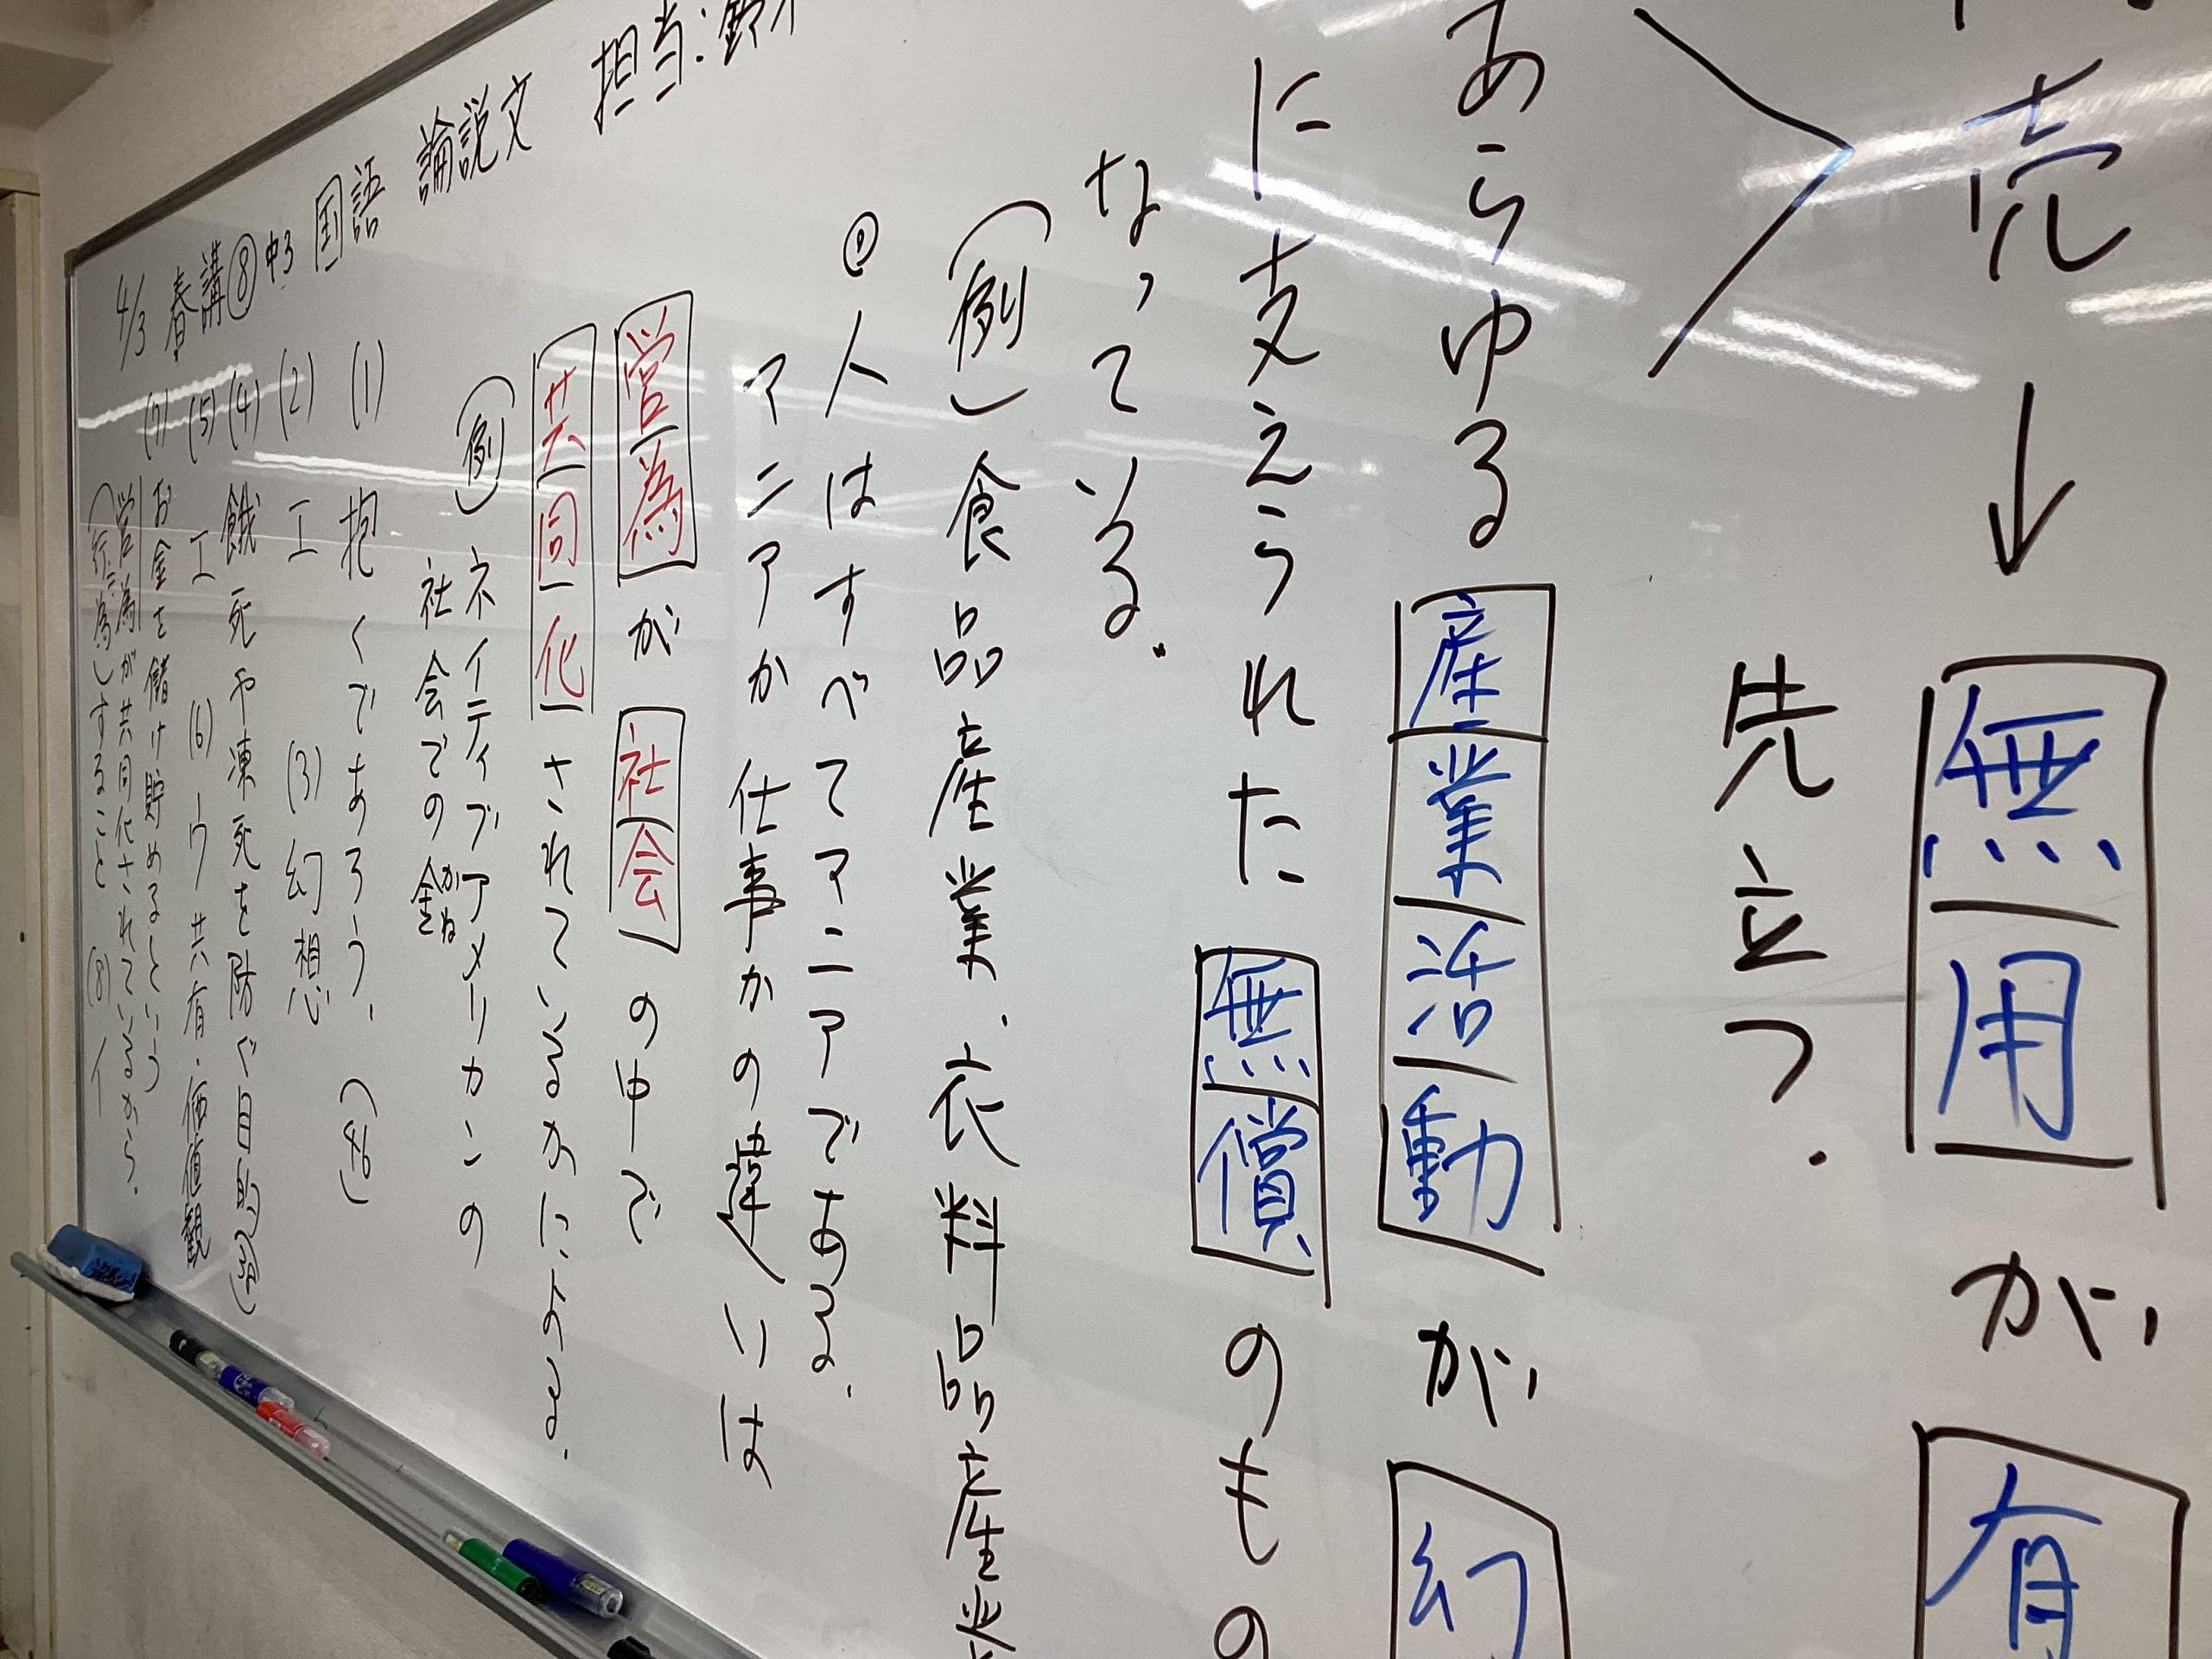 4/3 春講⑧ 中3 国語 論説文 担当:鈴木
売→無用が有
先立つ.
あらゆる産業活動が幻
に支えられた無償のもの
なっている.
(例)食品産業.衣料品産業
人はすべてマニアである.
マニアか仕事かの違いは
営為が社会の中で
共同化されているかによる.
(例)ネイティブアメリカンの
社会での金
かね
(1) 抱くであろう. (46)
(2) エ (3) 幻想
(4) 餓死や凍死を防ぐ目的
(5) エ (6) ウ 共有・価値観
(7) お金を儲け貯めるという
営為が共同化されているから.
(行為)すること (8) イ